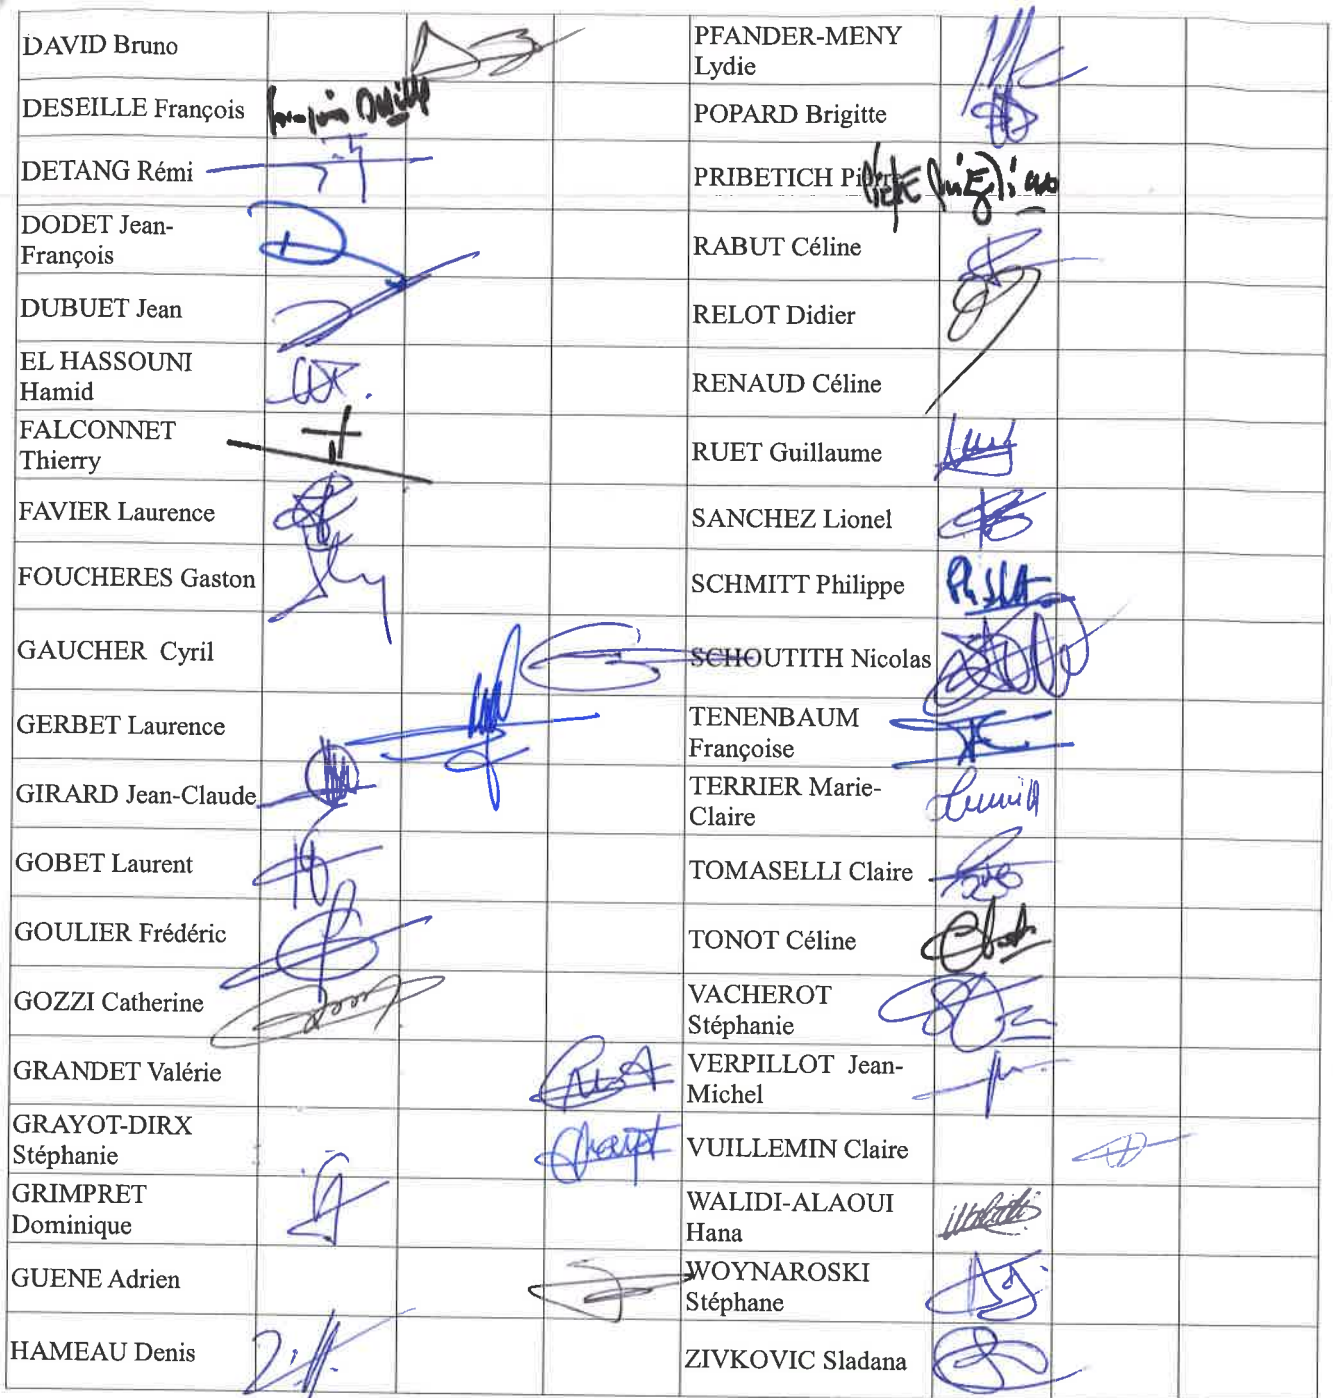 DAVID Bruno
DESEILLE François
DETANG Rémi
DODET Jean-
François
DUBUET Jean
EL HASSOUNI
Hamid
FALCONNET
Thierry
FAVIER Laurence
FOUCHERES Gaston
GAUCHER Cyril
GERBET Laurence
GIRARD Jean-Claude
GOBET Laurent
GOULIER Frédéric
GOZZI Catherine
GRANDET Valérie
GRAYOT-DIRX
Stéphanie
GRIMPRET
Dominique
GUENE Adrien
HAMEAU Denis
PFANDER-MENY
Lydie
POPARD Brigitte
PRIBETICH Pierre
RABUT Céline
RELOT Didier
RENAUD Céline
RUET Guillaume
SANCHEZ Lionel
SCHMITT Philippe
SCHOUTITH Nicolas
TENENBAUM
Françoise
TERRIER Marie-
Claire
TOMASELLI Claire
TONOT Céline
VACHEROT
Stéphanie
VERPILLOT Jean-
Michel
VUILLEMIN Claire
WALIDI-ALAOUI
Hana
WOYNAROSKI
Stéphane
ZIVKOVIC Sladana